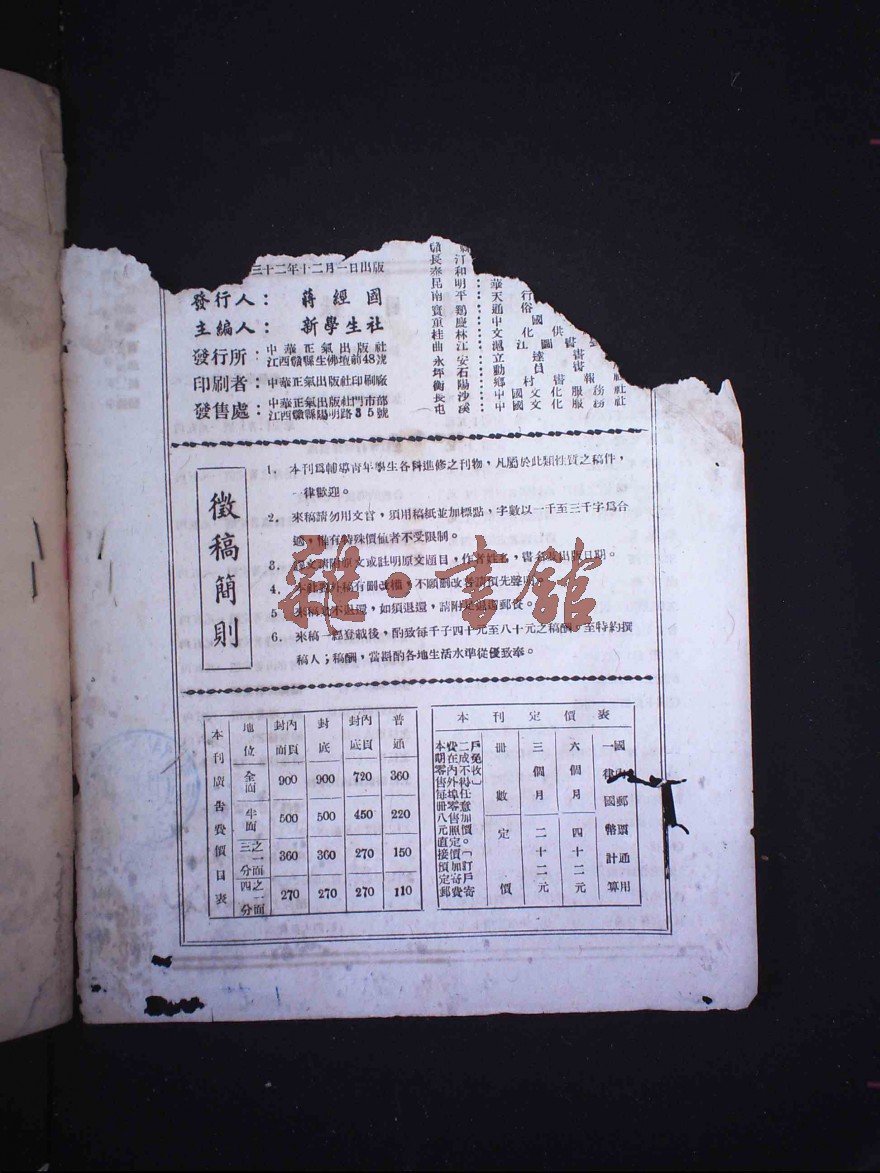 三十二年十二月一日出版
發行人： 蔣經國
主編人： 新學生社
發行所： 中華正氣出版社
江西贛縣生佛壇前48號
印刷者： 中華正氣出版社印刷廠
發售處： 中華正氣出版社門市部
江西贛縣陽明路35號
贛
長汀：
泰和：
昆明：華
南平：天行
寶鷄：通俗
重慶：中國
桂林：文化供
曲江：滬江圖書
永安：立達書
坪石：動員書
衡陽：鄉村書報社
長沙：中國文化服務社
屯溪：中國文化服務社
徵稿簡則
1. 本刊爲輔導青年學生各科進修之刊物，凡屬於此類性質之稿件，
一律歡迎。
2. 來稿請勿用文言，須用稿紙並加標點，字數以一千至三千字爲合
適，惟有特殊價值者不受限制。
3. 譯文請附原文或註明原文題目，作者姓名，書名及出版日期。
4. 本社對外稿有刪改權，不願刪改者請預先聲明。
5 來稿概不退還，如須退還，請附足退還郵費。
6. 來稿一經登載後，酌致每千子四十元至八十元之稿酬，至特約撰
稿人；稿酬，當斟酌各地生活水準從優致奉。
本刊廣告費價目表
地位 封內面頁 封底 封內底頁 普通
全面 900 900 720 360
半面 500 500 450 220
三之一分面 360 360 270 150
四之一分面 270 270 270 110
本刊定價表
冊數 三個月 六個月 一律國幣計算
定價 二十二元 四十二元 國內郵票通用
本期零售每冊八元直接預定郵費在內外埠零售照定價加寄費
雜·書館